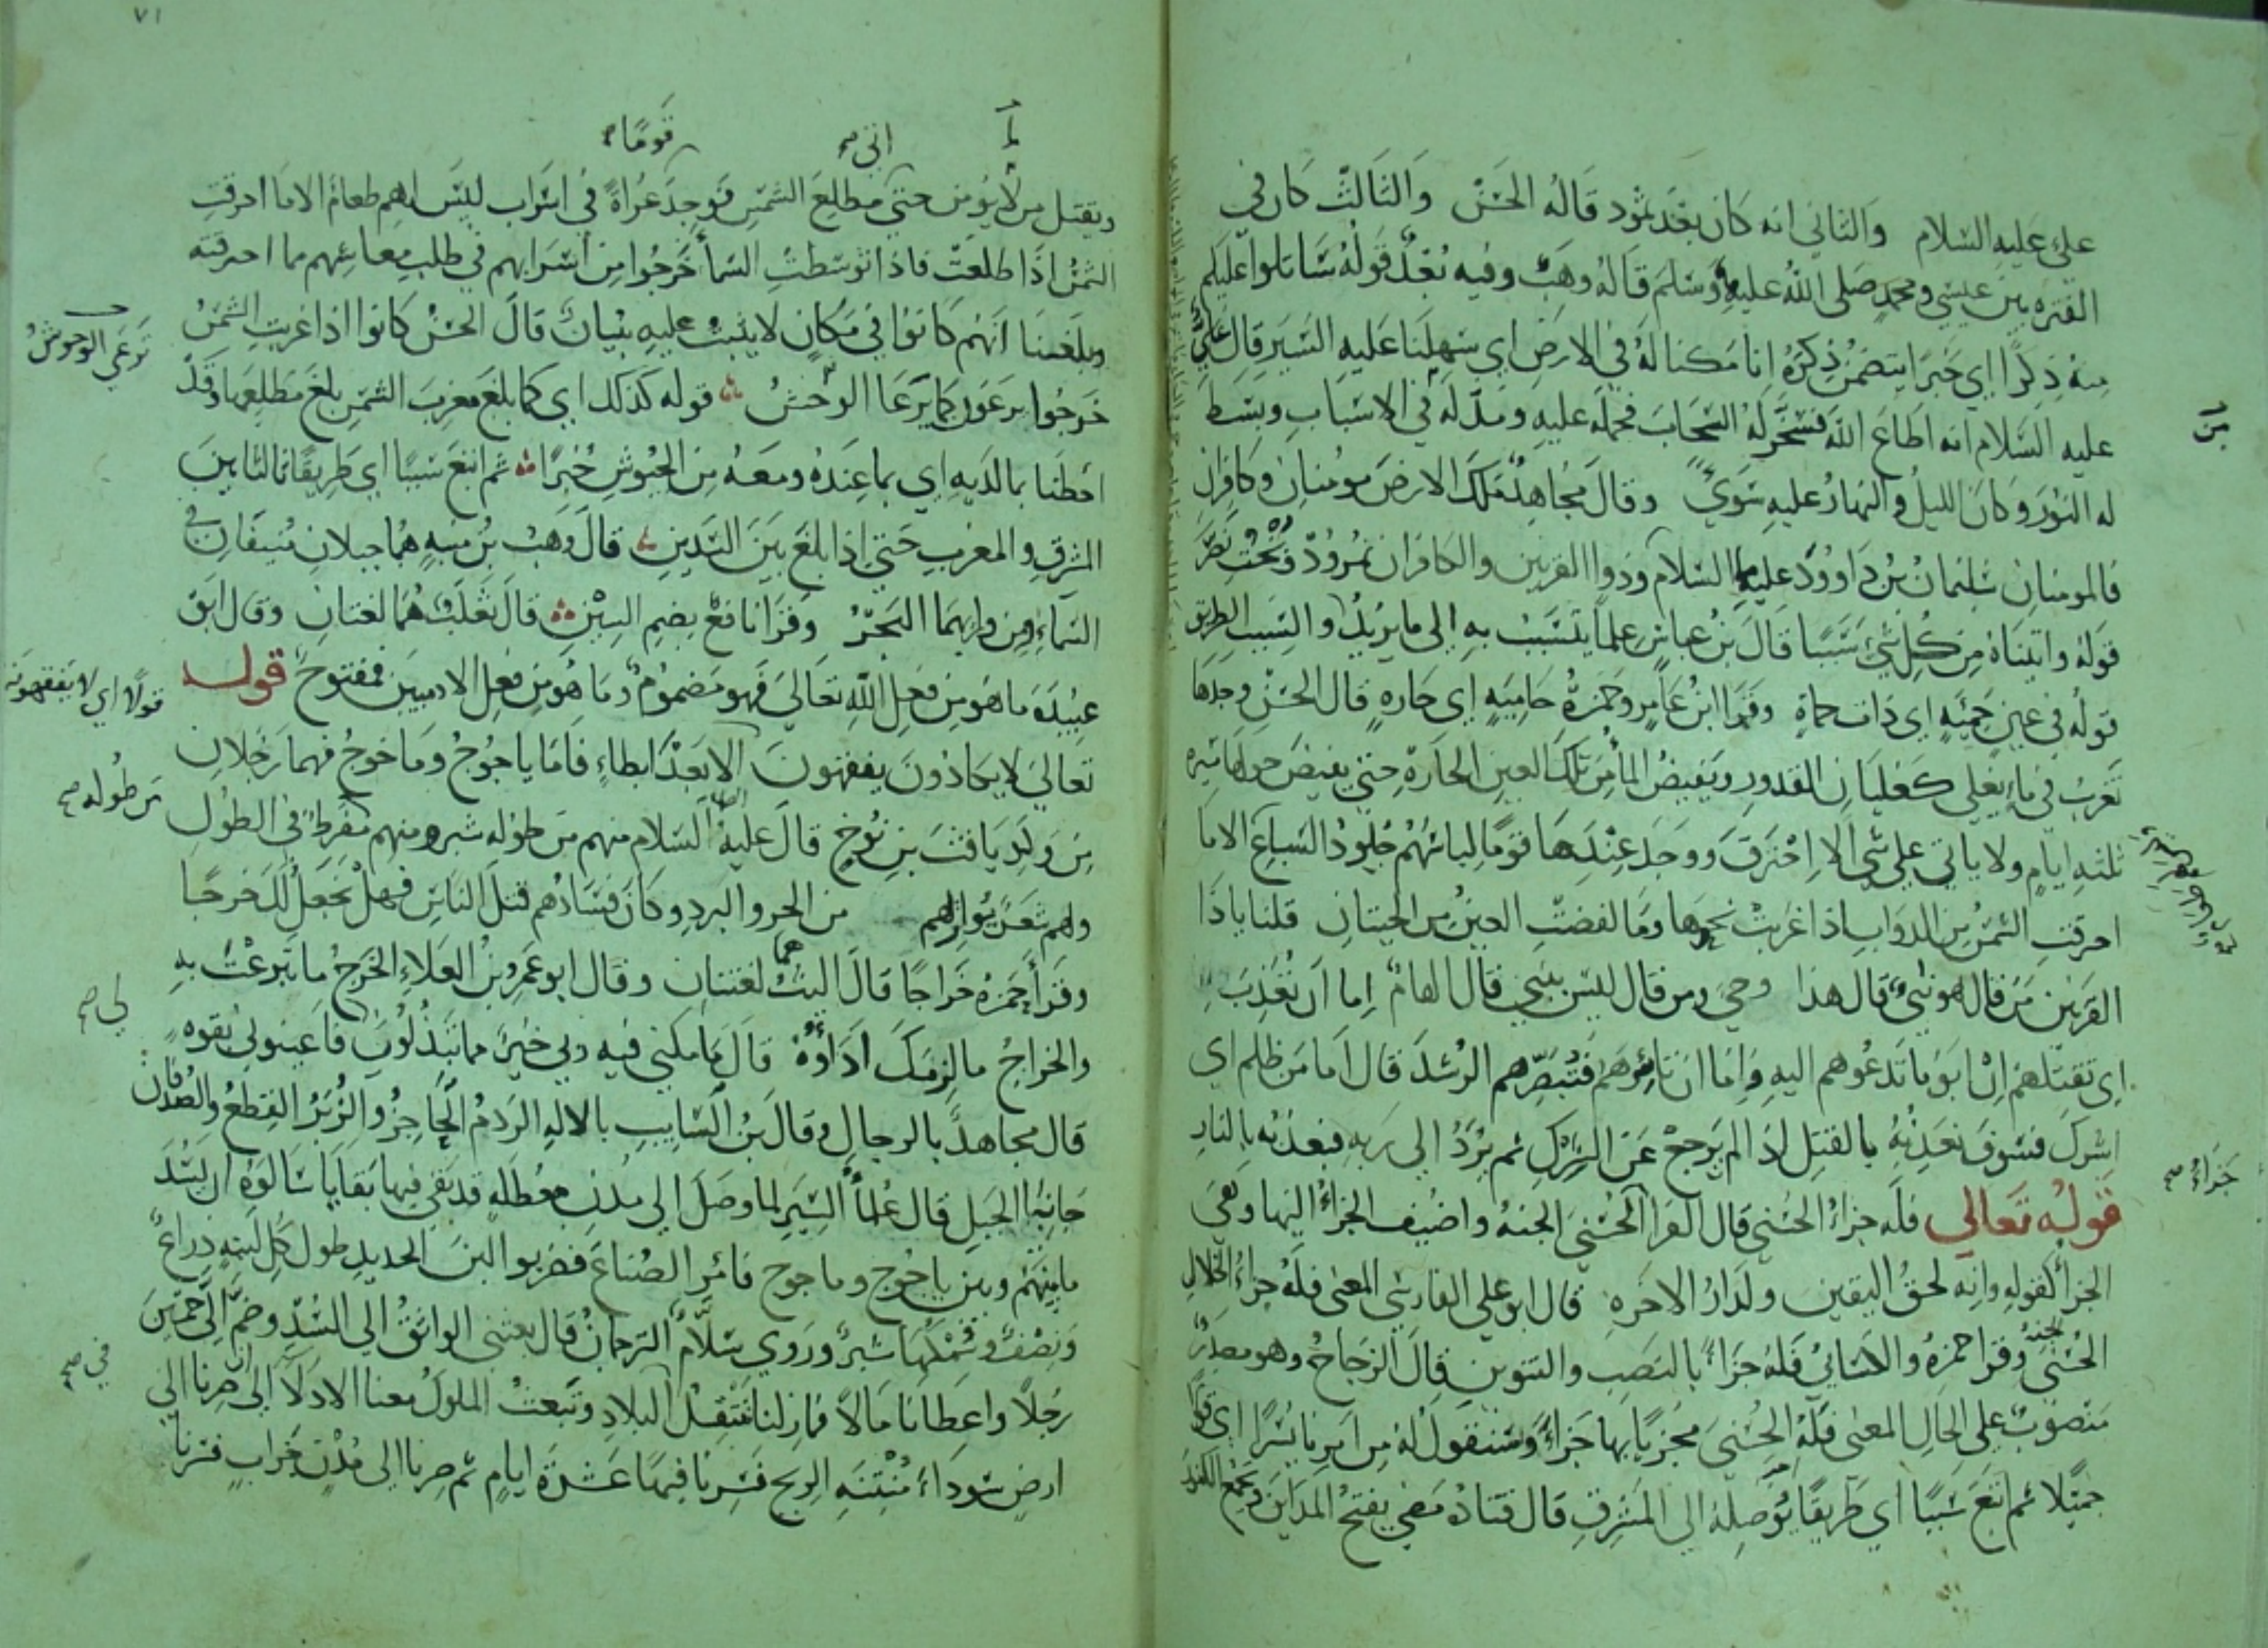 علي عليه السلام والثاني انه كان بعد ثمود قاله الحسن والثالث كان في
الفترة بين عيسي ومحمد صلي الله عليه وسلم قاله وهب وفيه بعد قوله ساتلوا عليكم
منه ذكرا اي خبرا يتضمن ذكره انا مكنا له في الارض اي سهلنا عليه السير قال علي
عليه السلام انه اطاع الله فسخر له السحاب فحمله عليه ومد له في الاسباب وبسط
له النور وكان الليل والنهار عليه سوي وقال مجاهد ملك الارض مومنان وكافران
فالمومنان سليمان بن داوود عليهما السلام وذوا القرنين والكافران نمرود وبخت نصر
قوله واتيناه من كل شي سببا قال بن عباس علما يتسبب به الي ما يريد والسبب الطريق
قوله في عين حمئه اي ذات حماة وقرا ابن عامر وحمزة حاميه اي حاره قال الحسن وجدها
تغرب في ماء يغلي كغليان القدور ويفيض الما من تلك العين الحارة حتي يفيض حولها مسيرة
ثلثه ايام ولا ياتي علي شي الا احترق ووجد عندها قوما لباسهم جلود السباع الا ما
احرقت الشمس من الدواب اذا غربت نحوها وما لفضت العين من الحيتان قلنا ياذا
القرنين من قال هو نبي قال هذا وحي ومن قال ليس بنبي قال الهام اما ان تعذب
اي تقتلهم ان ابو ما تدعوهم اليه واما ان تاسرهم فتبصرهم الرشد قال اما من ظلم اي
اشرك فسوف نعذبه بالقتل اذا لم يرجع عن الشرك ثم يرد الي ربه فيعذبه بالنار
قوله تعالي فله جزاء الحسني قال الفرا الحسني الجنه واضيف الجزاء اليها وهي
الجزا كقوله وانه لحق اليقين ولدار الاخره قال ابو علي الفارسي المعني فله جزاء الخلال
الحسني وقرا حمزة والكسائي فله جزاء بالنصب والتنوين قال الزجاج وهو مصدر
منصوب علي الحال المعني فله الحسني مجزيا بها جزاء وسنقول له من امرنا يسرا اي قولا
جميلا ثم اتبع سببا اي طريقا يوصله الي المشرق قال قتادة مضي يفتح المداين ويجمع الكنوز
من
جزاء صح
٧١
اتي صح
قوما صح
ويقتل من لا يومن حتي مطلع الشمس فوجد عراة في اسراب ليس لهم طعام الا ما احرقت
الشمس اذا طلعت فاذا توسطت السما خرجوا من اسرابهم في طلب معائشهم مما احرقته
وبلغنا انهم كانوا في مكان لا يثبت عليه بنيان قال الحسن كانوا اذا غربت الشمس
خرجوا يرعون كما يرعا الوحش قوله كذلك اي كما بلغ مغرب الشمس بلغ مطلعها وقد
احطنا بما لديه اي بما عنده ومعه من الجيوش خبرا ثم اتبع سببا اي طريقا ثالثا بين
المشرق والمغرب حتي اذا بلغ بين السدين قال وهب بن منبه هما جبلان منيفان في
السماء ومن ورائهما البحر وقرا نافع بضم السين قال ثعلب هما لغتان وقال ابو
عبيدة ما هو من فعل الله تعالي فهو مضموم وما هو من فعل الادميين فمفتوح قوله
تعالي لا يكادون يفقهون الا بعد ابطاء فاما ياجوج وماجوج فهما رجلان
من ولد يافث بن نوح قال عليه السلام منهم من طوله شبر ومنهم مفرط في الطول
ولهم شعر يواريهم من الحر والبرد وكان فسادهم قتل الناس فهل نجعل لك خرجا
وقرا حمزة خراجا قال الليث هما لغتان وقال ابو عمرو بن العلاء الخرج ما تبرعت به
والخراج ما لزمك اداؤه قال ما مكني فيه ربي خير مما تبذلون فاعينوني بقوه
قال مجاهد بالرجال وقال بن السايب بالاله الردم الحاجز والزبر القطع والصدفان
جانبا الجبل قال علماء السير لما وصل الي مدن معطله قد بقي فيها بقايا سالوه ان يسد
ما بينهم وبين ياجوج وماجوج فامر الصناع فضربوا اللبن الحديد طول كل لبنه ذراع
ونصف وسمكها شبر وروي سلام الترجمان قال بعثني الواثق الي السد وضم الي خمسين
رجلا واعطانا مالا فما زلنا نتنقل البلاد وتبعث الملوك معنا الادلا الي ان صرنا الي
ارض سوداء منتنه الريح فسرنا فيها عشرة ايام ثم صرنا الي مدن خراب فسرنا
ترعي الوحوش
قولا اي لا يفقهونه
من طوله صح
لي صح
في صح